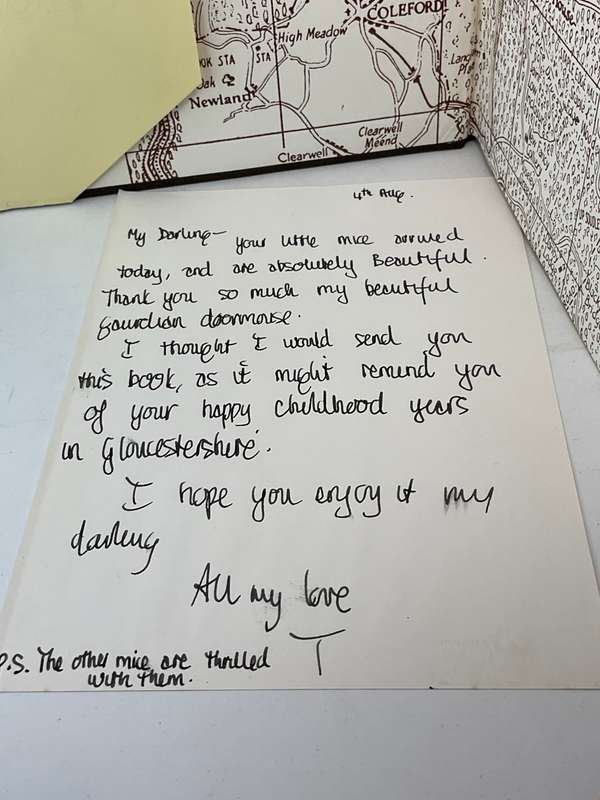 COLEFORD
High Meadow
OK STA
STA
Oak
Newland
Clearwell
Meend
Clearwell
4th Aug.
My Darling — your little mice arrived
today, and are absolutely Beautiful.
Thank you so much my beautiful
gaurdian doormouse.
I thought I would send you
this book, as it might remind you
of your happy childhood years
in Gloucestershire.
I hope you enjoy it my
darling
All my love
T
P.S. The other mice are thrilled
with them.